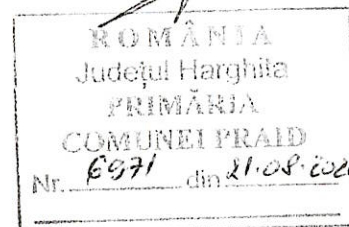 ROMÂNIA
Județul Harghita
PRIMĂRIA
COMUNEI PRAID
Nr. 6971 din 21.08.202